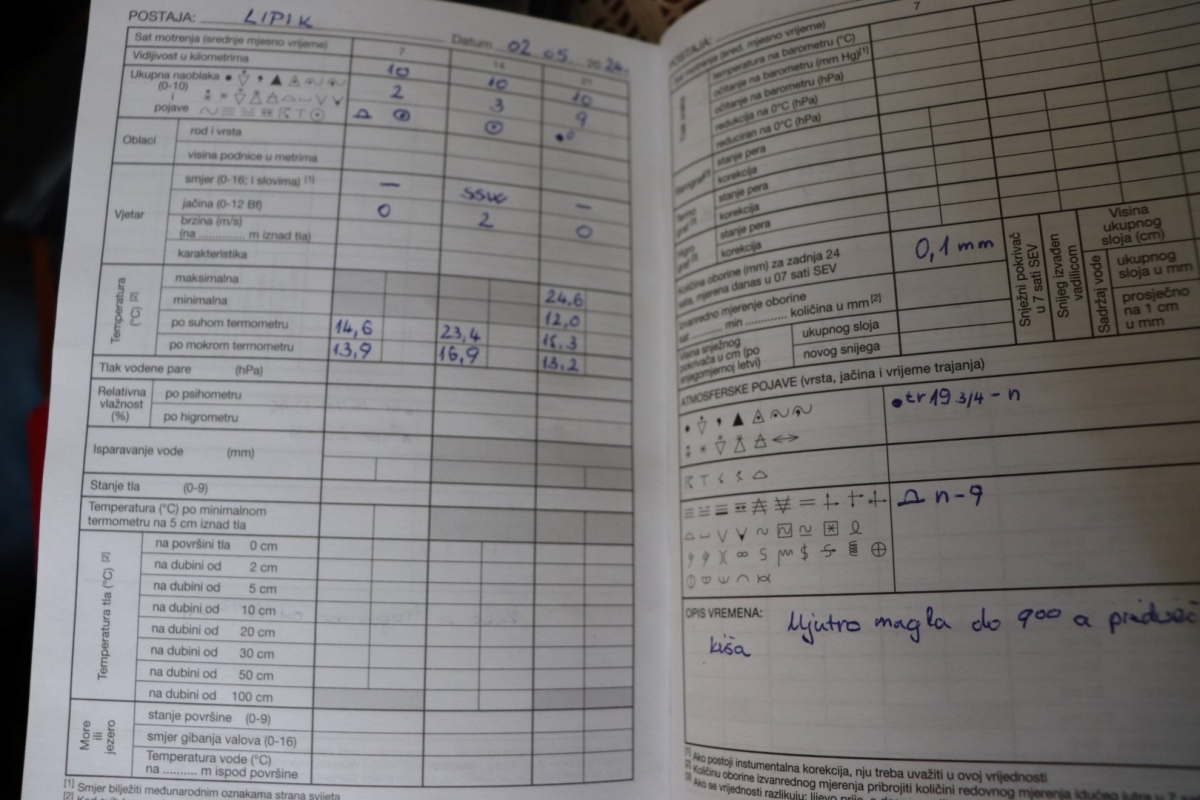 POSTAJA: LIPIK Datum 02.05 2024.
Sat motrenja (srednje mjesno vrijeme) 7 14 21
Vidljivost u kilometrima 10 10 10
Ukupna naoblaka 2 3 9
(0-10)
i
pojave
Oblaci
rod i vrsta
visina podnice u metrima
Vjetar
smjer (0-16; i slovima) [1] — SSW —
jačina (0-12 Bf) 0 2 0
brzina (m/s)
(na ............ m iznad tla)
karakteristika
Temperatura (°C) [2]
maksimalna 24,6
minimalna 12,0
po suhom termometru 14,6 23,4
po mokrom termometru 13,9 16,9 13,2
Tlak vodene pare (hPa)
Relativna vlažnost (%)
po psihometru
po higrometru
Isparavanje vode (mm)
Stanje tla (0-9)
Temperatura (°C) po minimalnom
termometru na 5 cm iznad tla
Temperatura tla (°C) [2]
na površini tla 0 cm
na dubini od 2 cm
na dubini od 5 cm
na dubini od 10 cm
na dubini od 20 cm
na dubini od 30 cm
na dubini od 50 cm
na dubini od 100 cm
More ili jezero
stanje površine (0-9)
smjer gibanja valova (0-16)
Temperatura vode (°C)
na .......... m ispod površine
[1] Smjer bilježiti međunarodnim oznakama strana svijeta
[2]
7
POSTAJA:
Sat motrenja (sred. mjesno vrijeme)
temperatura na barometru (°C)
očitanje na barometru (mm Hg)[1]
očitanje na barometru (hPa)
redukcija na 0°C (hPa)
reduciran na 0°C (hPa)
stanje pera
korekcija
stanje pera
korekcija
stanje pera
korekcija
Količina oborine (mm) za zadnja 24
sata, mjerena danas u 07 sati SEV 0,1 mm
Izvanredno mjerenje oborine
sat ......... min ............ količina u mm[2]
Visina snježnog
pokrivača u cm (po
snjegomjernoj letvi)
ukupnog sloja
novog snijega
Snježni pokrivač
u 7 sati SEV
Snijeg izvađen
vadilicom
Visina
ukupnog
sloja (cm)
Sadržaj vode
ukupnog
sloja u mm
prosječno
na 1 cm
u mm
ATMOSFERSKE POJAVE (vrsta, jačina i vrijeme trajanja)
tr 19 3/4 - n
n - 9
OPIS VREMENA: Ujutro magla do 900 a predveč
kiša
[1] Ako postoji instumentalna korekcija, nju treba uvažiti u ovoj vrijednosti
[2] Količinu oborine izvanrednog mjerenja pribrojiti količini redovnog mjerenja idućeg jutra u 7